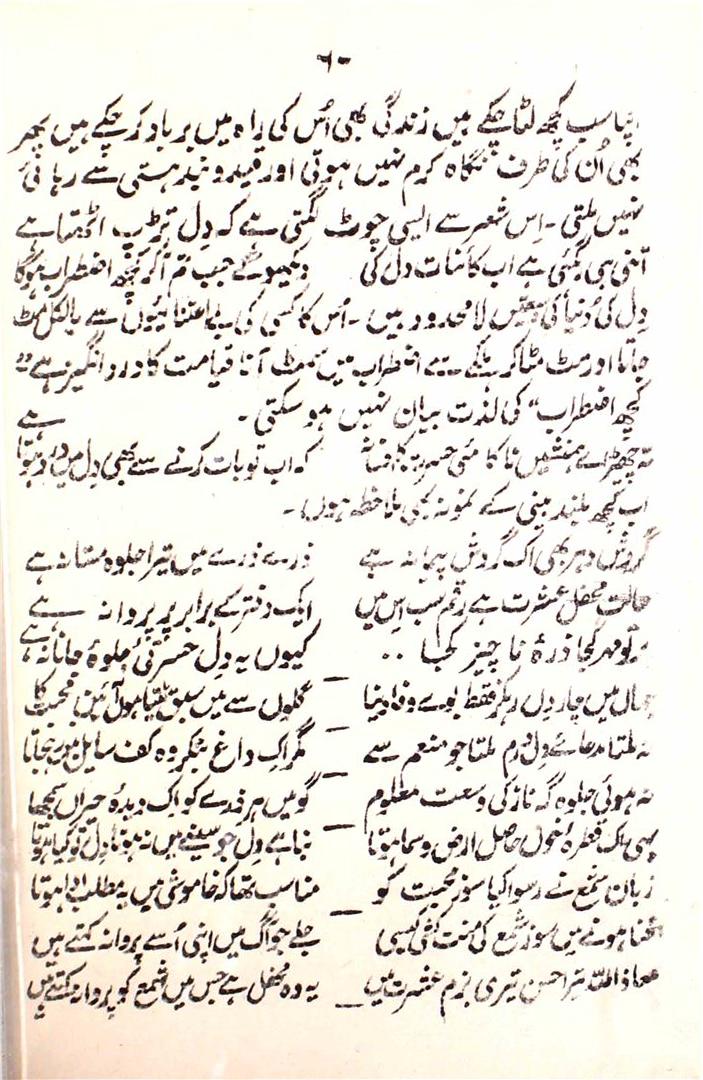 ۶۰
اپنا سب کچھ لٹا چکے ہیں زندگی بھی اُس کی راہ میں برباد کر چکے ہیں پھر
بھی اُن کی طرف نگاہ کرم نہیں ہوتی اور قیدو بند ہستی سے رہائی
نہیں ملتی ۔ اِس شعر سے ایسی چوٹ لگتی ہے کہ دِل تڑپ اٹھتا ہے
اتنی ہی رہ گئی ہے اب کائنات دل کی دیکھو گے جب تم آکر کچھ اضطراب ہوگا
دِل کی دُنیا کی لا محدود ہیں ۔ اُس کا کسی کی بے اعتنائیوں سے بالکل مٹ
جانا اور مٹ مٹا کر ہلکے سے اضطراب میں سمٹ آنا قیامت کا درد انگیز ہے "
کچھ اضطراب" کی لذت بیان نہیں ہو سکتی ۔
نہ چھیڑ اے ہمنشیں نا کامئی حسرت کا افسانہ کہ اب تو بات کرنے سے بھی دِل میں درد ہوتا ہے
اب کچھ بلند بینی کے نمونہ بھی ملاحظہ ہوں ۔
گردشِ دہر بھی اک گردشِ پیمانہ ہے ذرے ذرے میں تیرا جلوہ مستانہ ہے
حالت محفل عشرت ہے رقم سب اِس میں ایک دفتر کے برابر پر پروانہ ہے
پرتو مہر کجا ذرۂ نا چیز کجا ۰۰ کیوں یہ دِل حسرتئی جلوۂ جانانہ ہے
جہاں میں چار دِن رہکر فقط بوے وفا دینا گلوں سے میں سبق لیتا ہوں آئین محبت کا
نہ ملتا مدعائے دِل درم ملتا جو منعم سے مگر اِک داغ بنکر وہ کف سایل میں رہجاتا
نہ ہوئی جلوہ گہ ناز کی وسعت معلوم گو میں ہر ذرے کو اک دیدۂ حیراں سمجھا
یہی اک قطرۂ خوں حاصلِ ارض و سما ہوتا بنا ہے دِل جو سینے میں نہ ہوتا دِل تو کیا ہوتا
زبان شمع نے رسوا کیا سوز محبت کو مناسب تھا کہ خاموشی میں یہ مطلب ادا ہوتا
فنا ہونے میں سوز شمع کی منت کشی کیسی جلے جو آگ میں اپنی اُسے پروانہ کہتے ہیں
معاذ اللہ تیرا حسن تیری بزم عشرت میں یہ وہ محفل ہے جس میں شمع کو پروانہ کہتے ہیں